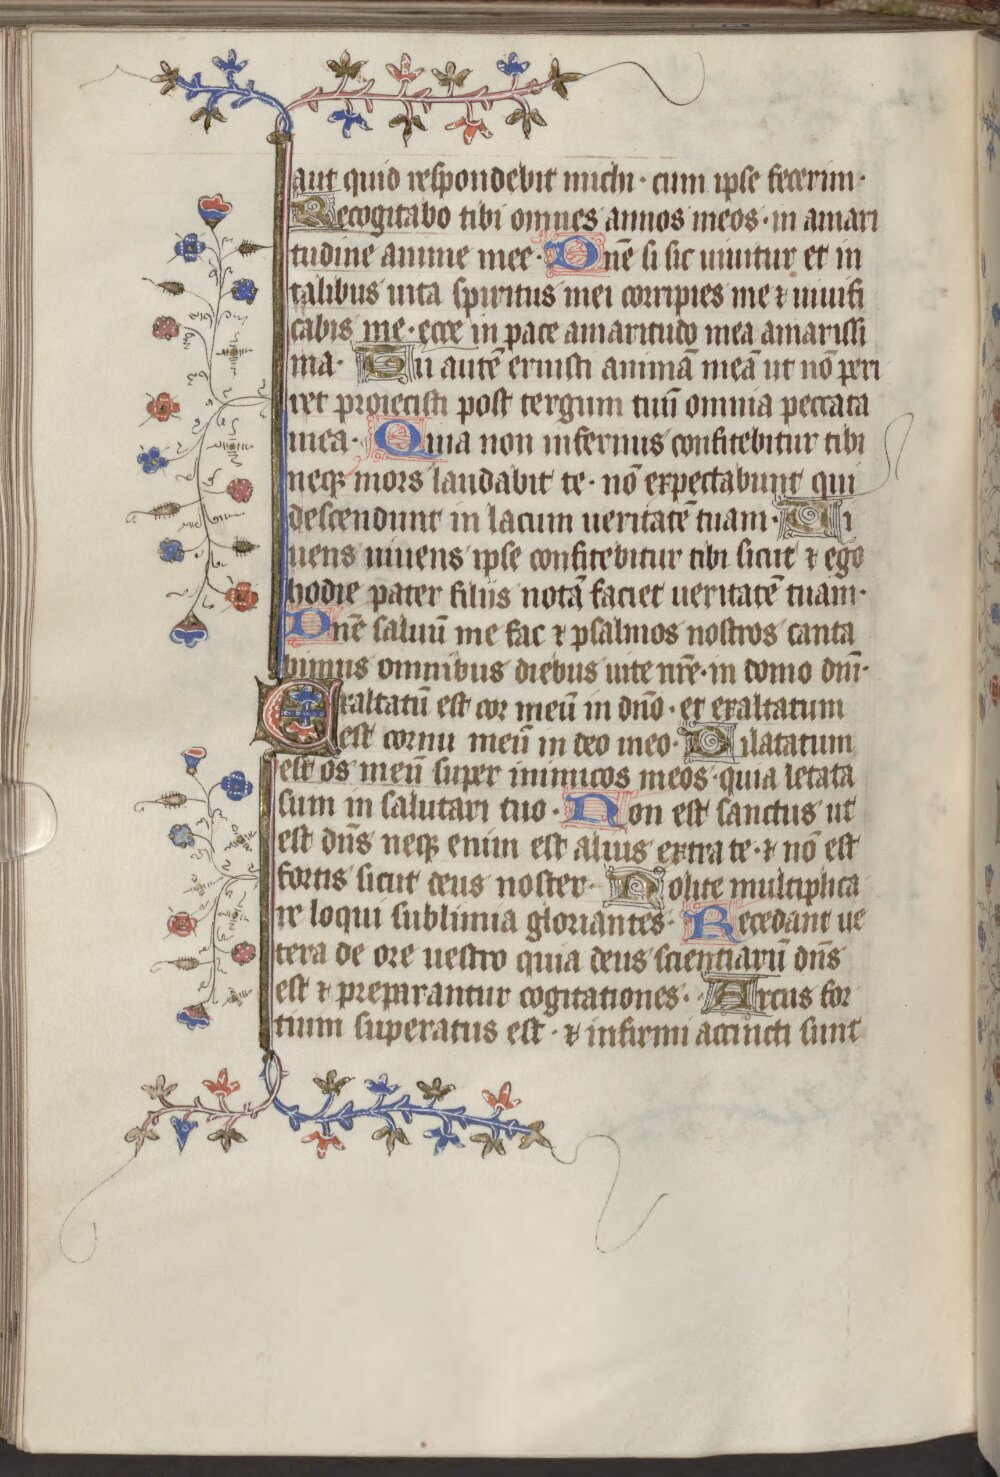 aut quid respondebit michi · cum ipse fecerim ·
Recogitabo tibi omnes annos meos · in amari
tudine anime mee · Dnē si sic uiuitur et in
talibus uita spiritus mei corripies me ⁊ uiuifi
cabis me · ecce in pace amaritudo mea amarissi
ma · Tu autē eruisti animā meā ut nō peri
ret proiecisti post tergum tuū omnia peccata
mea · Quia non infernus confitebitur tibi
neqꝫ mors laudabit te · nō expectabunt qui
descendunt in lacum ueritatē tuam · Ui
uens uiuens ipse confitebitur tibi sicut ⁊ ego
hodie pater filiis notā faciet ueritatē tuam ·
Dnē saluū me fac ⁊ psalmos nostros canta
bimus omnibus diebus uite nrē · in domo dnī ·
Exaltatū est cor meū in dnō · et exaltatum
est cornu meū in deo meo · Dilatatum
est os meū super inimicos meos · quia letata
sum in salutari tuo · Non est sanctus ut
est dn̄s neqꝫ enim est alius extra te · ⁊ nō est
fortis sicut deus noster · Nolite multiplica
re loqui sublimia gloriantes · Recedant ue
tera de ore uestro quia deus scientiarū dn̄s
est ⁊ preparantur cogitationes · Arcus for
tium superatus est · ⁊ infirmi accincti sunt